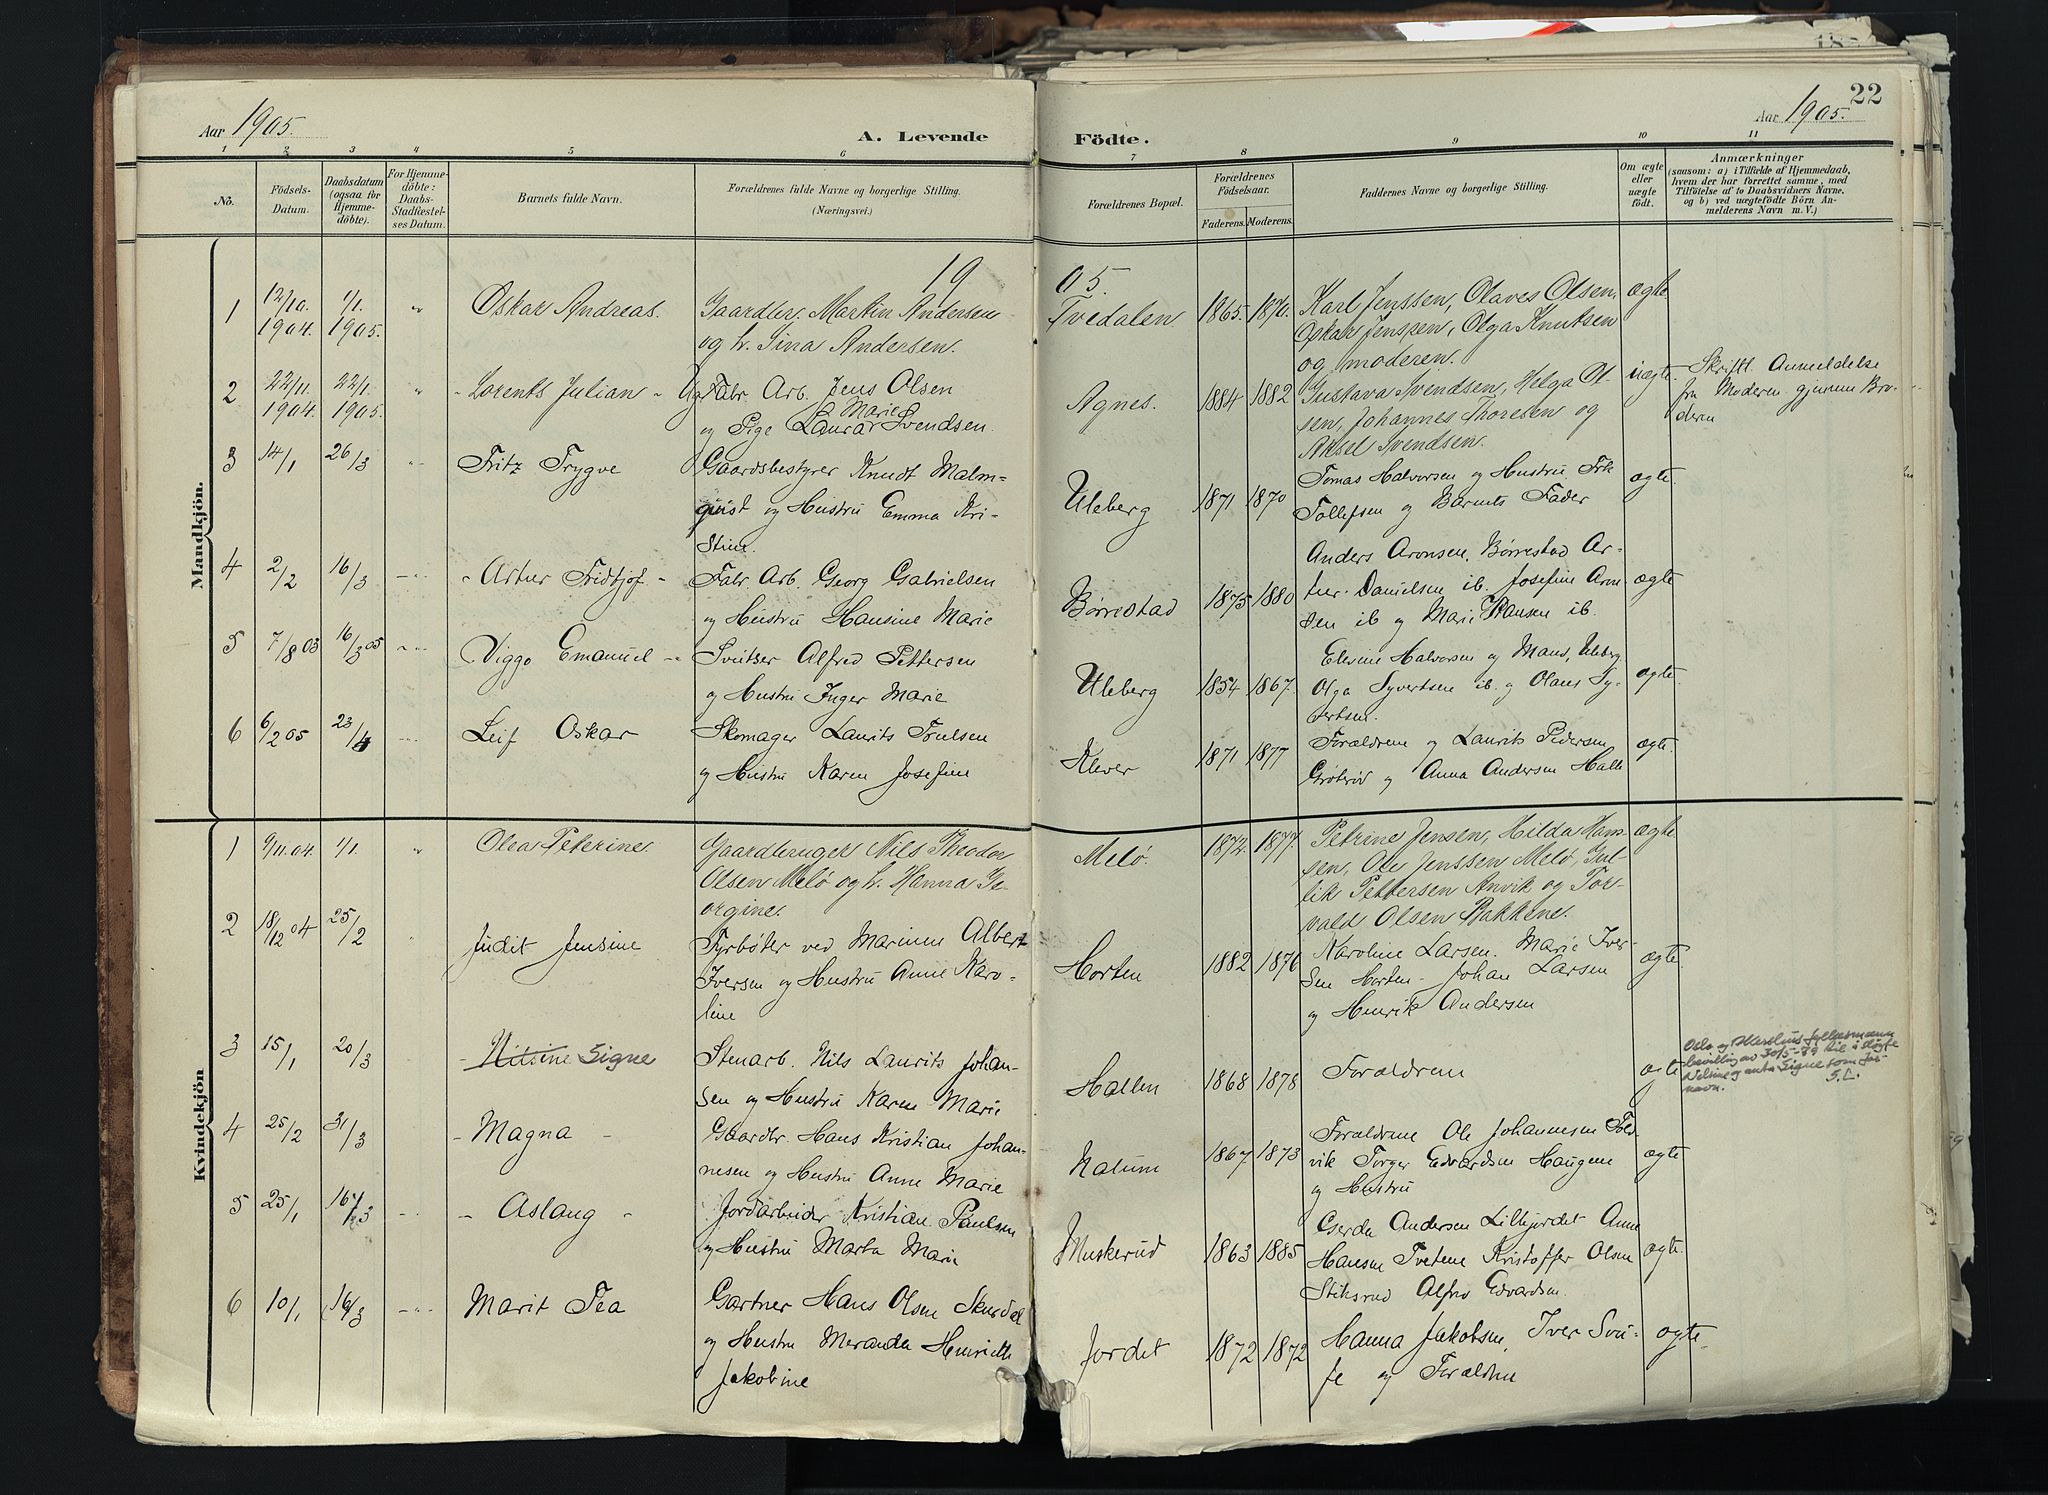 22
Aar 1905. A. Levende Födte. Aar 1905.
1 2 3 4 5 6 7 8 9 10 11
No.
Födsels-
Datum.
Daabsdatum
(ogsaa for
Hjemme-
döbte).
For Hjemme-
döbte:
Daabs-
Stadfæstel-
ses Datum.
Barnets fulde Navn.
Forældrenes fulde Navne og borgerlige Stilling.
(Næringsvei.)
Forældrenes Bopæl.
Forældrenes
Födselsaar.
Faderens. Moderens.
Faddernes Navne og borgerlige Stilling.
Om ægte
eller
uægte
født.
Anmærkninger
(saasom: a) i Tilfælde af Hjemmedaab,
hvem der har forrettet samme, med
Tilföielse af to Daabsvidners Navne,
og b) ved uægtefödte Börn An-
melderens Navn m. V.)
Mandkjön.
19 05.
1 12/10. 1904. 1/1. 1905. " Oskar Andreas. Gaardbr. Martin Andersen
og h. Gina Andersen.
Tvedalen 1865. 1870. Karl Jenssen, Olaves Olsen,
Oskar Jenssen, Olga Knutsen
og moderen. ægte
2 22/11. 1904. 22/1. 1905. " Lorents Julian Fabr. Arb. Jens Olsen
og Pige Laura Marie Svendsen.
Agnes. 1884 1882 Gustava Svendsen, Helga Ol-
sen, Johannes Thoresen og
Aksel Svendsen. uægte. Skriftl. Anmeldelse
fra Moderen gjennem Bro-
deren
3 14/1 26/3 Fritz Trygve Gaardsbestyrer Knudt Malm-
quist og Hustru Emma Kri-
stine.
Uleberg 1871 1870 Tomas Halvorsen og Hustru
Tollefsen og Barnets Fader ægte
4 2/2 16/3 Artur Fridtjof Fabr. Arb. Georg Gabrielsen
og Hustru Hansine Marie
Børrestad 1875 1880 Anders Aronsen, Børrestad Ar-
tur Danielsen ib. Josefine Aron-
sen ib og Marie Hansen ib. ægte
5 7/8 03 16/3 05 Viggo Emanuel Svitser Alfred Pettersen
og Hustru Inger Marie
Uleberg 1854 1867 Elevine Halvorsen og Mans, Uleberg
Olga Syvertsen ib. og Olaus Sy-
vertsen. ægte
6 6/2 05 23/4 Leif Oskar Skomager Laurits Truelsen
og Hustru Karen Josefine
Klever 1871 1877 Forældrene og Laurits Pedersen
Grøterød og Anna Andersen Halle ægte.
Kvindekjön
1 9/11.04. 1/1. " Olea Peterine. Gaardbruger Nils Theodor
Olsen Melö og h. Hanna Ge-
orgine.
Melö. 1872. 1877. Petrine Jensen, Hilda Han-
sen, Ole Jenssen Melö, Gul-
lik Pettersen Anvik og Tor-
vald Olsen Bakkene. ægte
2 18/12 04 25/2 Judit Jensine Fyrbøter ved Marinen Albert
Iversen og Hustru Anne Karo-
line
Horten 1882 1876 Karoline Larsen. Marie Iver-
sen Horten Johan Larsen
og Henrik Andersen ægte
3 15/1 20/3 Nilsine Signe Stenarb. Nils Laurits Johan-
sen og Hustru Karen Marie
Hallen 1868 1878 Forældrene ægte
Oslo og Akershus fylkesmann
bevilling av 30/5-79 til å sløyfe
Nilsine og anta Signe som for-
navn. S.L.
4 25/2 31/3 Magna Gaardbr. Hans Kristian Johan-
nesen og Hustru Anne Marie
Nalum 1867 1873 Forældrene Ole Johannesen Fold-
vik Torger Edvardsen Haugene
og Hustru ægte
5 25/1 16/3 Aslaug Jordarbeider Kristian Paulsen
og Hustru Marta Marie
Muskerud 1863 1885 Gerda Andersen Lillejordet Anne
Hansen Tvetene Kristoffer Olsen
Stiksrud Alfred Edvardsen. ægte.
6 10/1 16/3 Marit Tea Gartner Hans Olsen Skurdal
og Hustru Meranda Henriette
Jakobine
Jordet 1872 1872 Hanna Jakobsen, Iver
og Forældrene ægte